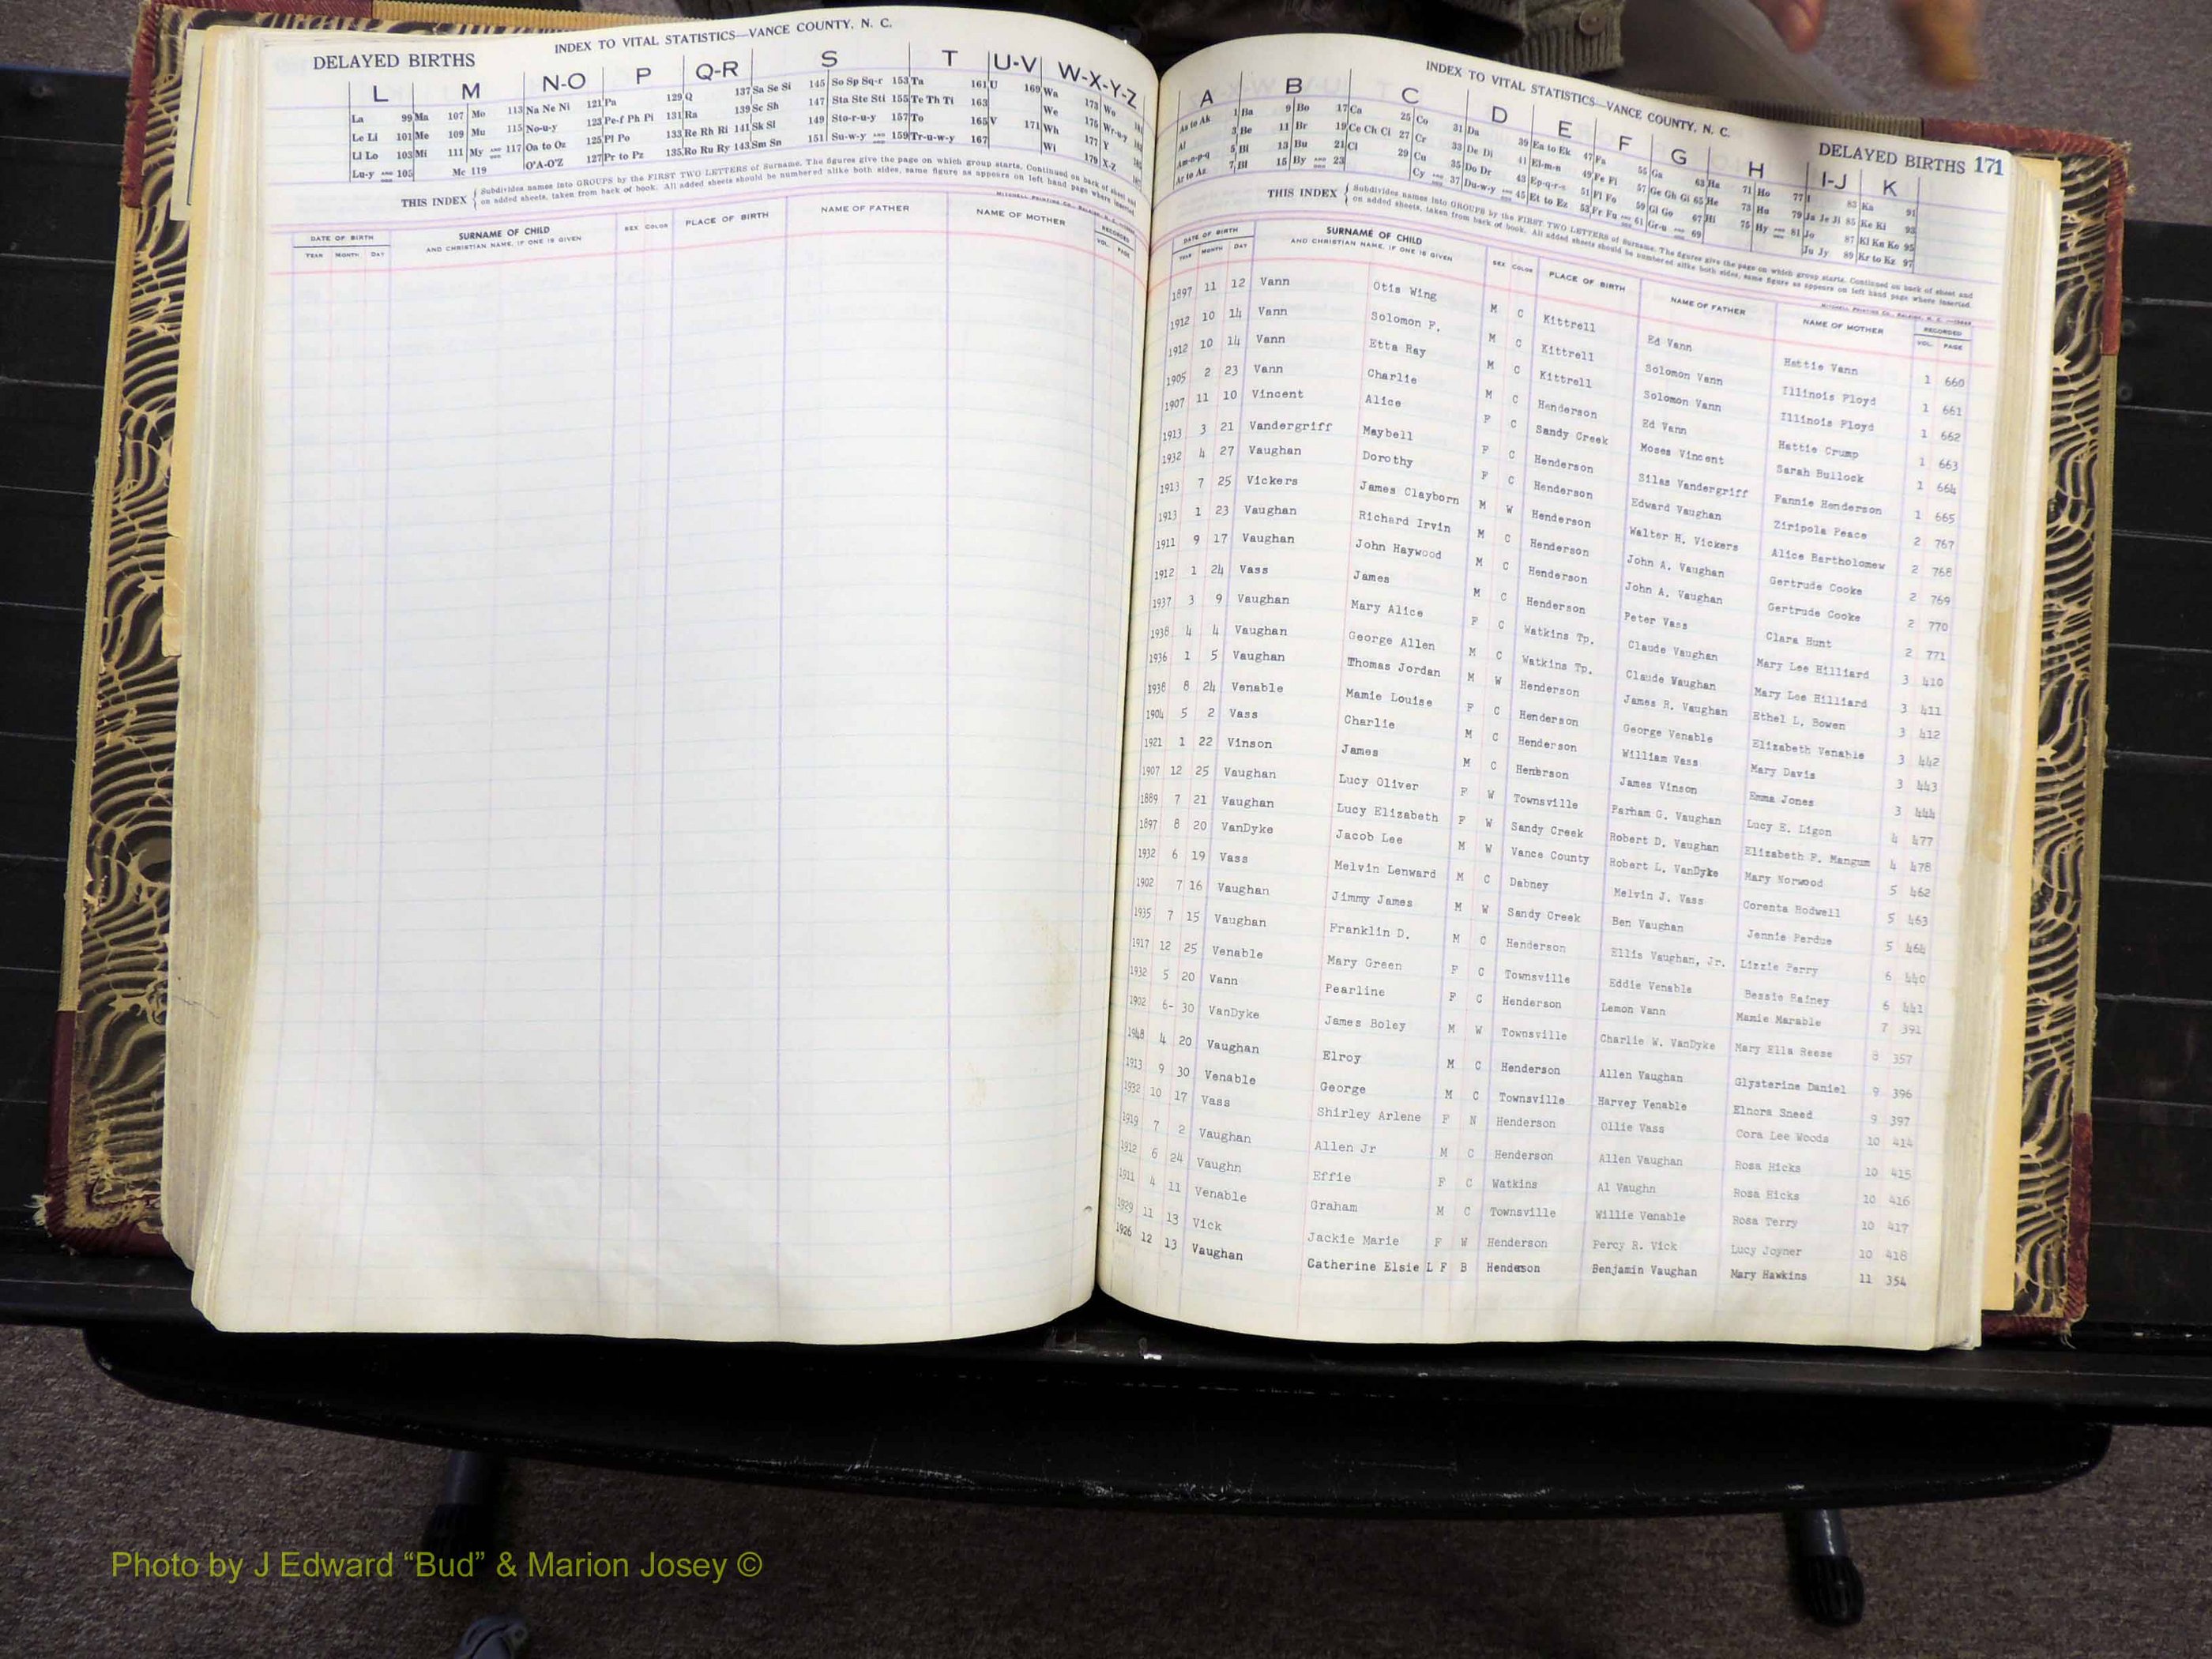 INDEX TO VITAL STATISTICS—VANCE COUNTY, N. C.
DELAYED BIRTHS
L M N-O P Q-R S T U-V W-X-Y-Z
La 99 Ma 107 Mo 113 Na Ne Ni 121 Pa 129 Q 137 Sa Se Si 145 So Sp Sq-r 153 Ta 161 U 169 Wa 173 Wo
Le Li 101 Me 109 Mu 115 No-u-y 123 Pe-f Ph Pi 131 Ra 139 Sc Sh 147 Sta Ste Sti 155 Te Th Ti 163 We 175 Wr-u-y
Ll Lo 103 Mi 111 My AND END 117 Oa to Oz 125 Pl Po 133 Re Rh Ri 141 Sk Sl 149 Sto-r-u-y 157 To 165 V 171 Wh 177 Y
Lu-y AND END 105 Mc 119 O'A-O'Z 127 Pr to Pz 135 Ro Ru Ry 143 Sm Sn 151 Su-w-y AND END 159 Tr-u-w-y 167 Wi 179 X-Z
THIS INDEX { Subdivides names into GROUPS by the FIRST TWO LETTERS of Surname. The figures give the page on which group starts. Continued on back of sheet and
on added sheets, taken from back of book. All added sheets should be numbered alike both sides, same figure as appears on left hand page where inserted.
MITCHELL PRINTING CO., RALEIGH, N. C.
DATE OF BIRTH SURNAME OF CHILD SEX COLOR PLACE OF BIRTH NAME OF FATHER NAME OF MOTHER RECORDED
YEAR MONTH DAY AND CHRISTIAN NAME, IF ONE IS GIVEN VOL. PAGE
INDEX TO VITAL STATISTICS—VANCE COUNTY, N. C.
DELAYED BIRTHS 171
A B C D E F G H I-J K
Aa to Ak 1 Ba 9 Bo 17 Ca 25 Co 31 Da 39 Ea to Ek 47 Fa 55 Ga 63 Ha 71 Ho 77 I 83 Ka 91
Al 3 Be 11 Br 19 Ce Ch Ci 27 Cr 33 De Di 41 El-m-n 49 Fe Fi 57 Ge Gh Gi 65 He 73 Hu 79 Ja Je Ji 85 Ke Ki 93
Am-n-p-q 5 Bi 13 Bu 21 Cl 29 Cu 35 Do Dr 43 Ep-q-r-s 51 Fl Fo 59 Gl Go 67 Hi 75 Hy AND END 81 Jo 87 Kl Kn Ko 95
Ar to Az 7 Bl 15 By AND END 23 Cy AND END 37 Du-w-y AND END 45 Et to Ez 53 Fr Fu AND END 61 Gr-u AND END 69 Ju Jy 89 Kr to Kz 97
THIS INDEX { Subdivides names into GROUPS by the FIRST TWO LETTERS of Surname. The figures give the page on which group starts. Continued on back of sheet and
on added sheets, taken from back of book. All added sheets should be numbered alike both sides, same figure as appears on left hand page where inserted.
MITCHELL PRINTING CO., RALEIGH, N. C.
DATE OF BIRTH SURNAME OF CHILD SEX COLOR PLACE OF BIRTH NAME OF FATHER NAME OF MOTHER RECORDED
YEAR MONTH DAY AND CHRISTIAN NAME, IF ONE IS GIVEN VOL. PAGE
1897 11 12 Vann Otis Wing M C Kittrell Ed Vann Hattie Vann 1 660
1912 10 14 Vann Solomon F. M C Kittrell Solomon Vann Illinois Floyd 1 661
1912 10 14 Vann Etta Ray M C Kittrell Solomon Vann Illinois Floyd 1 662
1905 2 23 Vann Charlie M C Henderson Ed Vann Hattie Crump 1 663
1907 11 10 Vincent Alice F C Sandy Creek Moses Vincent Sarah Bullock 1 664
1913 3 21 Vandergriff Maybell F C Henderson Silas Vandergriff Fannie Henderson 1 665
1932 4 27 Vaughan Dorothy F C Henderson Edward Vaughan Ziripola Peace 2 767
1913 7 25 Vickers James Clayborn M W Henderson Walter H. Vickers Alice Bartholomew 2 768
1913 1 23 Vaughan Richard Irvin M C Henderson John A. Vaughan Gertrude Cooke 2 769
1911 9 17 Vaughan John Haywood M C Henderson John A. Vaughan Gertrude Cooke 2 770
1912 1 24 Vass James M C Henderson Peter Vass Clara Hunt 2 771
1937 3 9 Vaughan Mary Alice F C Watkins Tp. Claude Vaughan Mary Lee Hilliard 3 410
1938 4 4 Vaughan George Allen M C Watkins Tp. Claude Vaughan Mary Lee Hilliard 3 411
1936 1 5 Vaughan Thomas Jordan M W Henderson James R. Vaughan Ethel L. Bowen 3 412
1938 8 24 Venable Mamie Louise F C Henderson George Venable Elizabeth Venable 3 442
1904 5 2 Vass Charlie M C Henderson William Vass Mary Davis 3 443
1921 1 22 Vinson James M C Henerson James Vinson Emma Jones 3 444
1907 12 25 Vaughan Lucy Oliver F W Townsville Parham G. Vaughan Lucy E. Ligon 4 477
1889 7 21 Vaughan Lucy Elizabeth F W Sandy Creek Robert D. Vaughan Elizabeth F. Mangum 4 478
1897 8 20 VanDyke Jacob Lee M W Vance County Robert L. VanDyke Mary Norwood 5 462
1932 6 19 Vass Melvin Lenward M C Dabney Melvin J. Vass Corenta Hodwell 5 463
1902 7 16 Vaughan Jimmy James M W Sandy Creek Ben Vaughan Jennie Perdue 5 464
1935 7 15 Vaughan Franklin D. M C Henderson Ellis Vaughan, Jr. Lizzie Perry 6 440
1917 12 25 Venable Mary Green F C Townsville Eddie Venable Bessie Rainey 6 441
1932 5 20 Vann Pearline F C Henderson Lemon Vann Mamie Marable 7 391
1902 6- 30 VanDyke James Boley M W Townsville Charlie W. VanDyke Mary Ella Reese 8 357
1948 4 20 Vaughan Elroy M C Henderson Allen Vaughan Glysterine Daniel 9 396
1913 9 30 Venable George M C Townsville Harvey Venable Elnora Sneed 9 397
1932 10 17 Vass Shirley Arlene F N Henderson Ollie Vass Cora Lee Woods 10 414
1919 7 2 Vaughan Allen Jr M C Henderson Allen Vaughan Rosa Hicks 10 415
1912 6 24 Vaughn Effie F C Watkins Al Vaughn Rosa Hicks 10 416
1911 4 11 Venable Graham M C Townsville Willie Venable Rosa Terry 10 417
1929 11 13 Vick Jackie Marie F W Henderson Percy R. Vick Lucy Joyner 10 418
1926 12 13 Vaughan Catherine Elsie L F B Henderson Benjamin Vaughan Mary Hawkins 11 354
Photo by J Edward “Bud” & Marion Josey ©